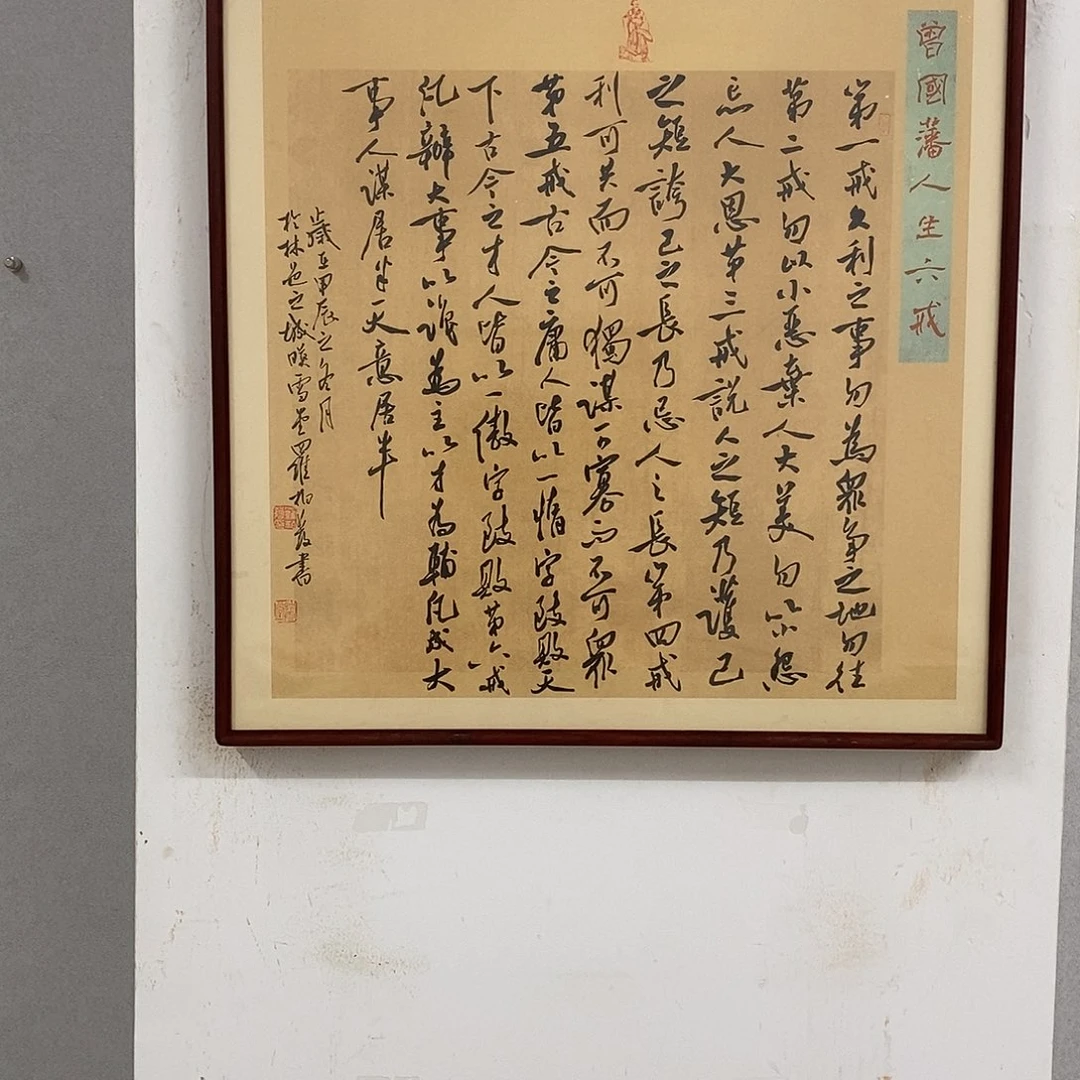 曾國藩人生六戒
第一戒久利之事勿為眾爭之地勿往
第二戒勿以小惡棄人大美勿以小怨
忘人大恩第三戒說人之短乃護己
之短誇己之長乃忌人之長第四戒
利可共而不可獨謀可寡而不可眾
第五戒古今之庸人皆以一惰字致敗天
下古今之才人皆以一傲字致敗第六戒
凡辦大事以識為主以才為輔凡成大
事人謀居半天意居半
歲在甲辰之冬月
於林邑之城暎雪堂羅柏茂書